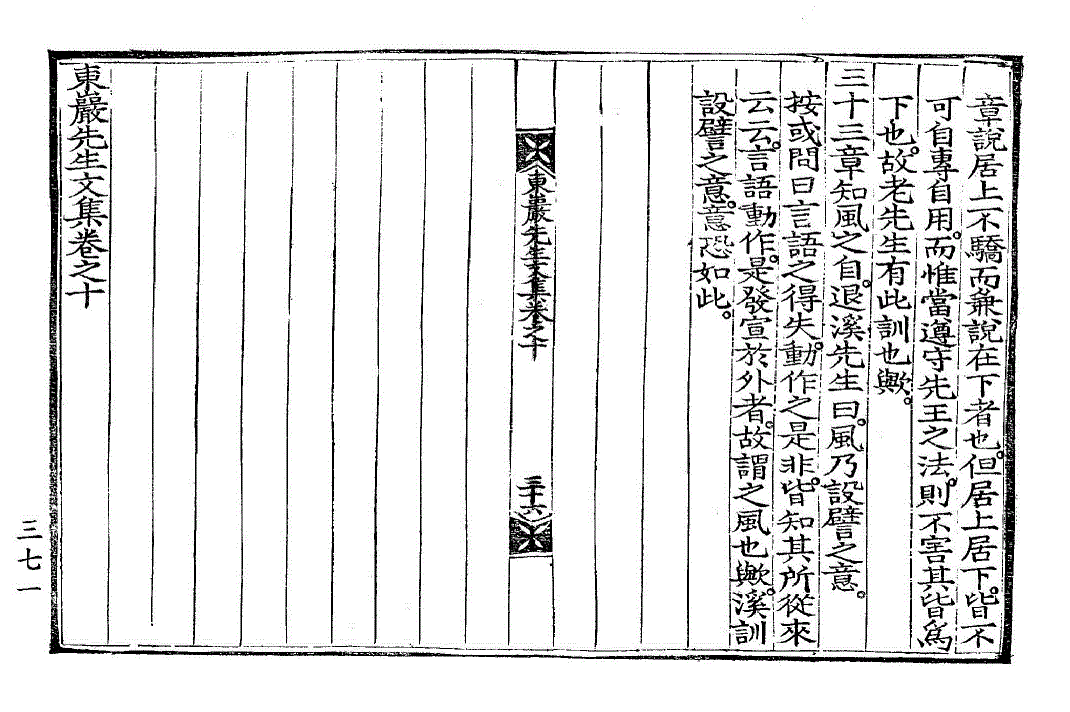 章說居上不驕而兼說在下者也。但居上居下。皆不
可自專自用。而惟當遵守先王之法。則不害其皆爲
下也。故老先生有此訓也歟。
三十三章知風之自。退溪先生曰。風乃設譬之意。
按或問曰言語之得失。動作之是非。皆知其所從來
云云。言語動作。是發宣於外者。故謂之風也歟。溪訓
設譬之意。意恐如此。
東巖先生文集卷之十
三十六
東巖先生文集卷之十
三七一